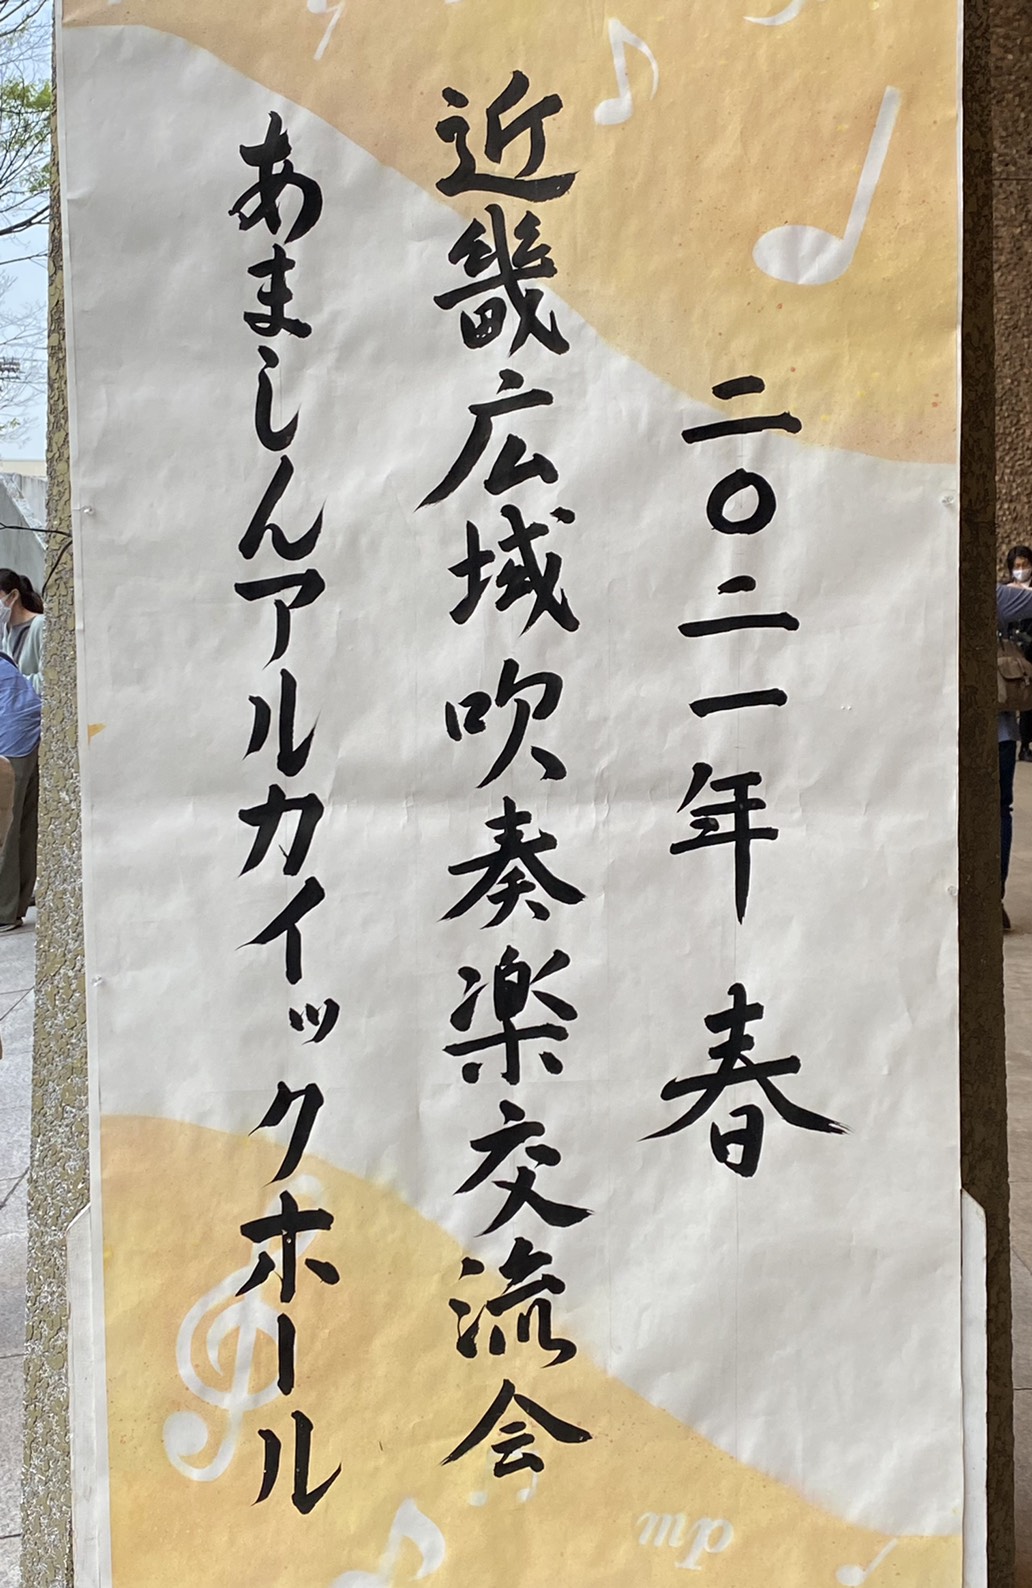 二〇二一年 春
近畿広域吹奏楽交流会
あましんアルカイックホール
mp